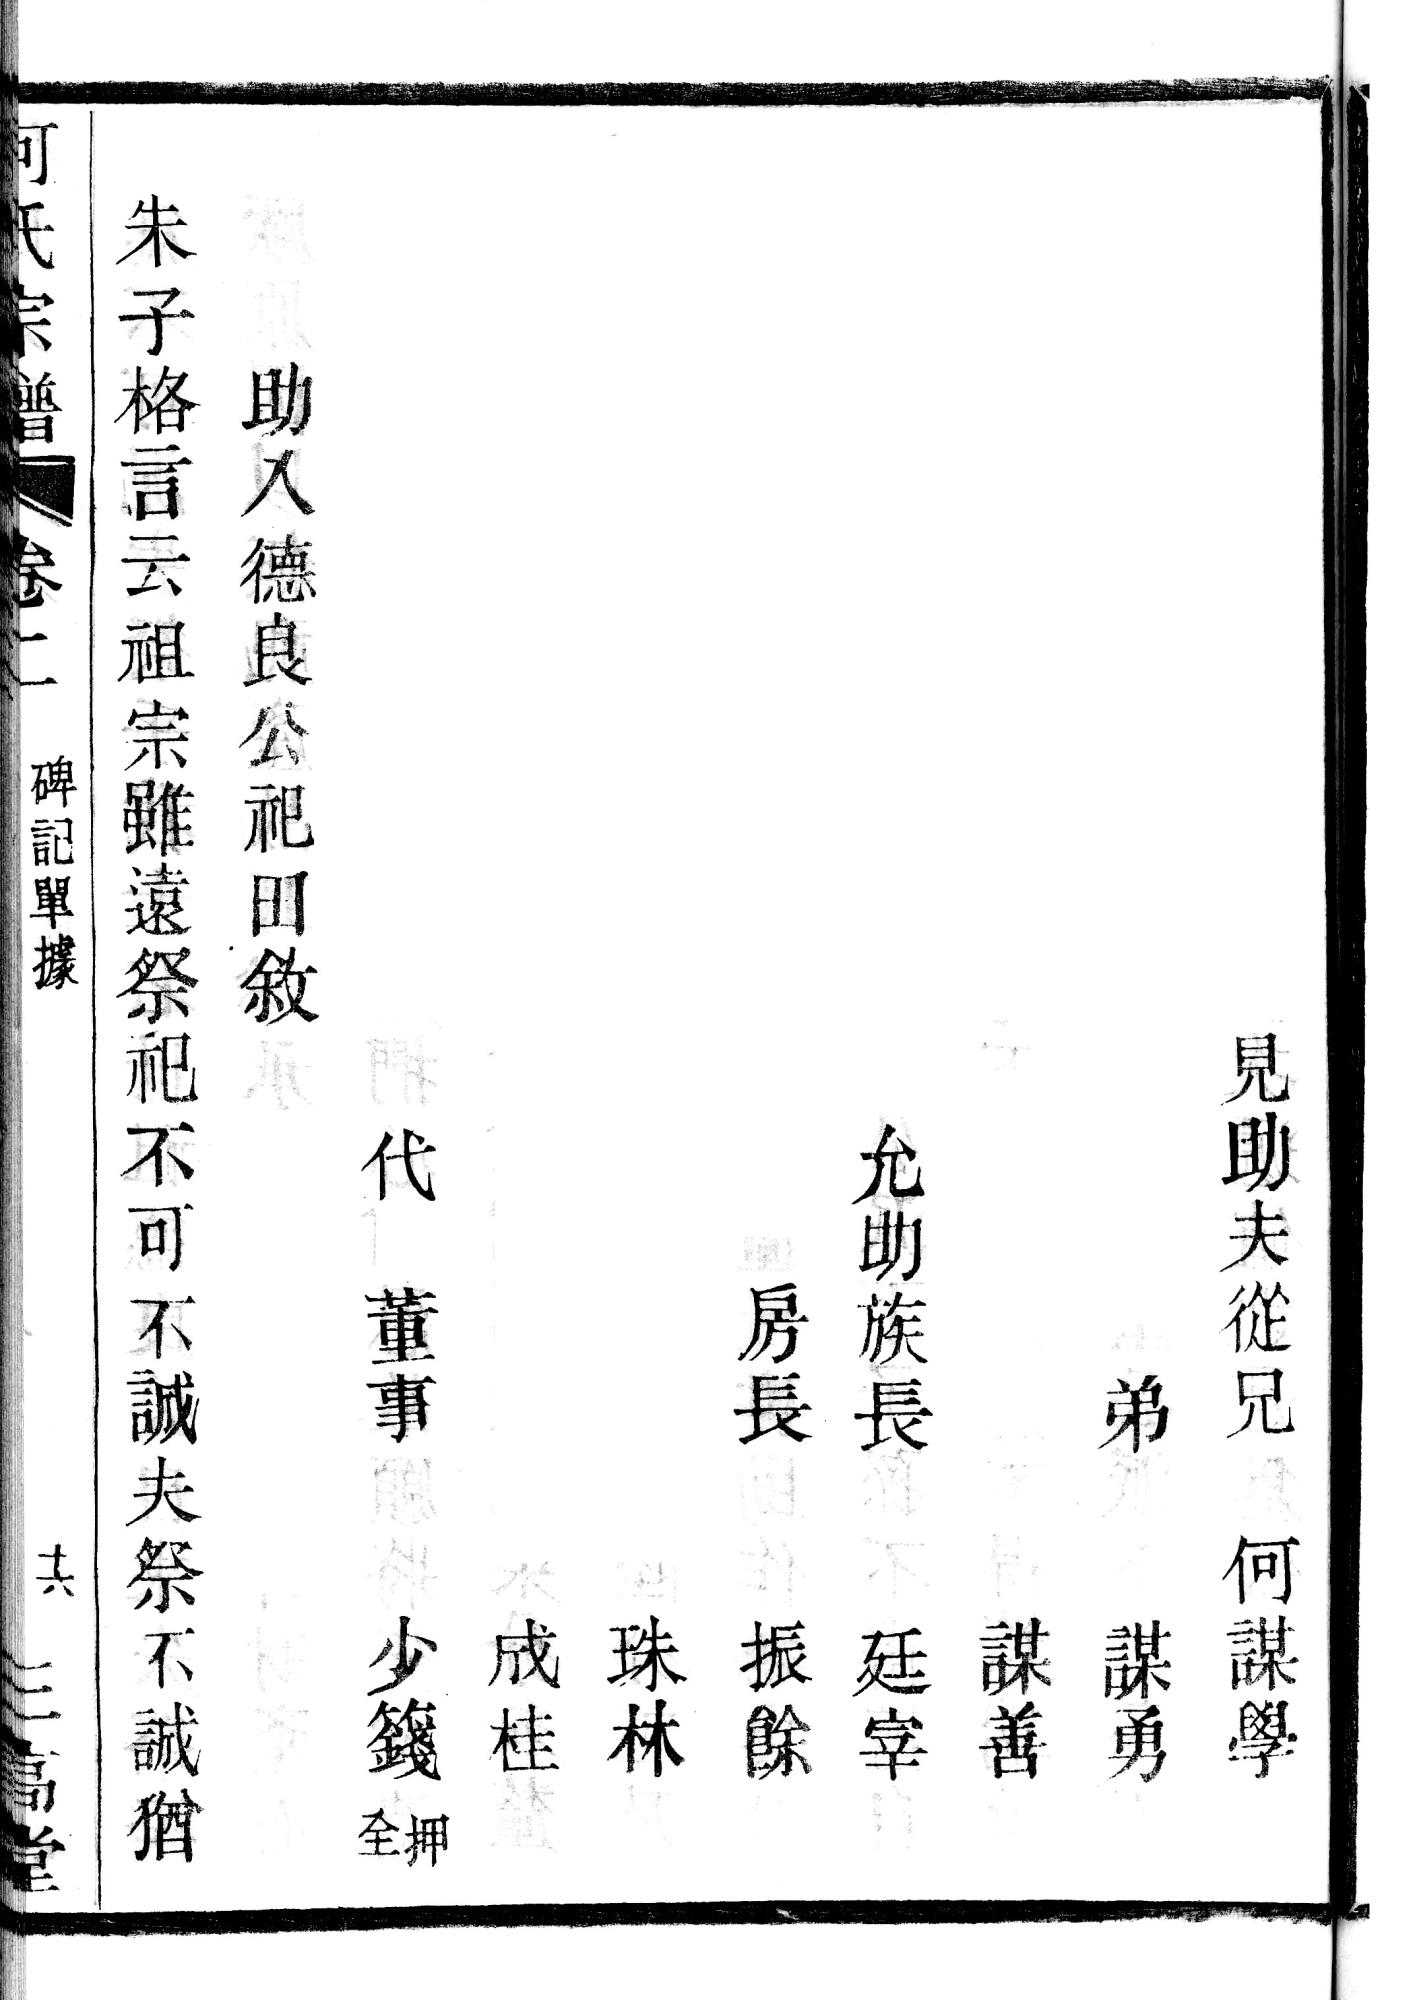 見助夫從兄　何謀學
弟　謀勇
謀善
允助族長　廷宰
房長　振餘
珠林
成桂
代　董事　少籛　押全
助入德良公祀田敘
朱子格言云祖宗雖遠祭祀不可不誠夫祭不誠猶
何氏宗譜　卷二　碑記單據　十六　三高堂